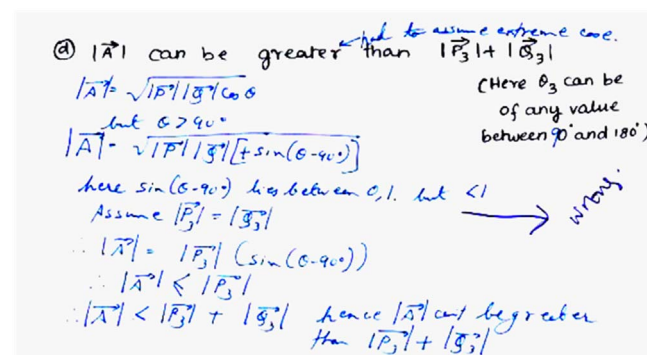 had to assume extreme case.
ⓓ |A⃗| can be greater than |P⃗₃| + |Q⃗₃|
(Here θ₃ can be
of any value
between 90° and 180°)
|A⃗| = √|P⃗||Q⃗| cos θ
but θ > 90°
|A⃗| = √|P⃗||Q⃗| [+ sin(θ-90°)]
here sin(θ-90°) lies between 0, 1. but <1
→ wrong.
Assume |P⃗₃| = |Q⃗₃|
∴ |A⃗| = |P⃗₃| (sin(θ-90°))
∴ |A⃗| < |P⃗₃|
∴ |A⃗| < |P⃗₃| + |Q⃗₃| hence |A⃗| can't be greater
than |P⃗₃| + |Q⃗₃|